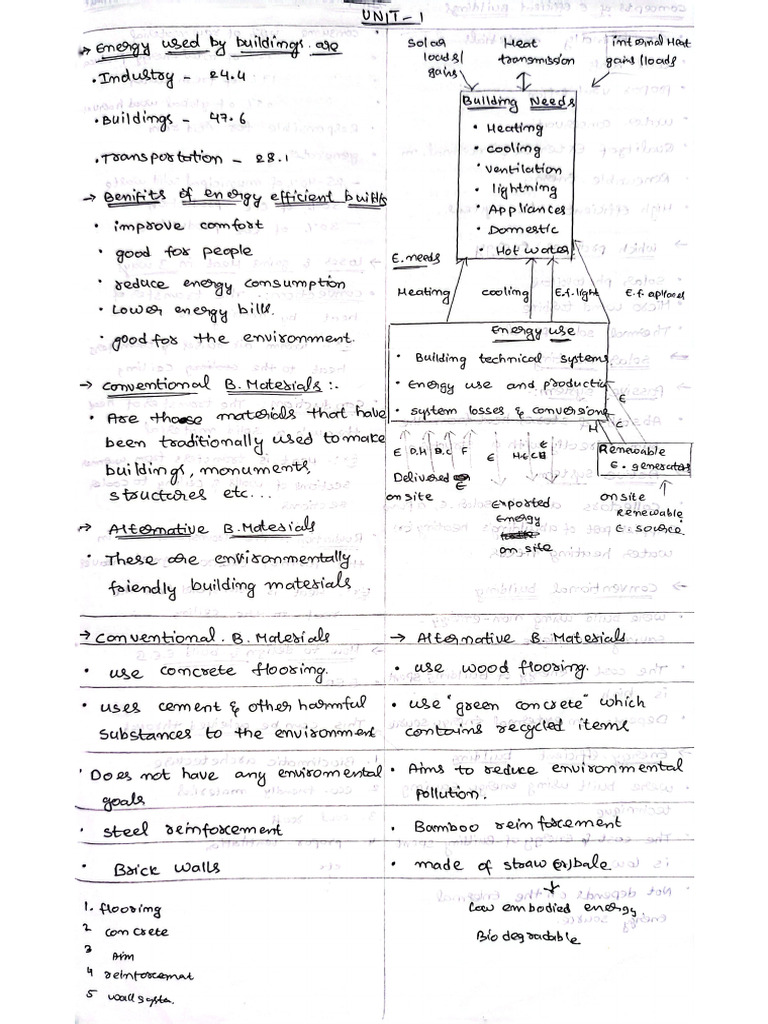 UNIT-1
→ Energy used by buildings are
• Industry - 24.4
• Buildings - 47.6
• Transportation - 28.1
→ Benifits of energy efficient builds
• improve comfort
• good for people
• reduce energy consumption
• Lower energy bills.
• good for the environment.
→ Conventional B. Materials :-
• Are those materials that have
been traditionally used to make
buildings, monuments,
structures etc...
→ Alternative B. Materials
• These are environmentally
friendly building materials
Solar loads/ gains
Heat transmission
internal Heat gains/loads
Building Needs
• Heating
• cooling
• ventilation
• lightning
• Appliances
• Domestic
• Hot water
E. needs
Heating
cooling
E.f.light
Energy use
• Building technical systems
• Energy use and productio
• system losses & conversions
E
H
E
E D,H B.C F E
E
Delivered
E
on site
Exported
Energy
on site
Renewable
E. generators
on site
Renewable
E source
→ Conventional. B. Materials
→ Alternative B. Materials
• use concrete flooring.
• use wood flooring.
• uses cement & other harmful
substances to the environment
• use "green concrete" which
contains recycled items
• Does not have any enviromental
goals
• Aims to reduce environmental
pollution.
• steel reinforcement
• Bamboo reinforcement
• Brick walls
• made of straw (or) bale
↓
Low embodied energy
Bio degradable
1. flooring
2 concrete
3 Aim
4 reinforcemat
5 wall system.